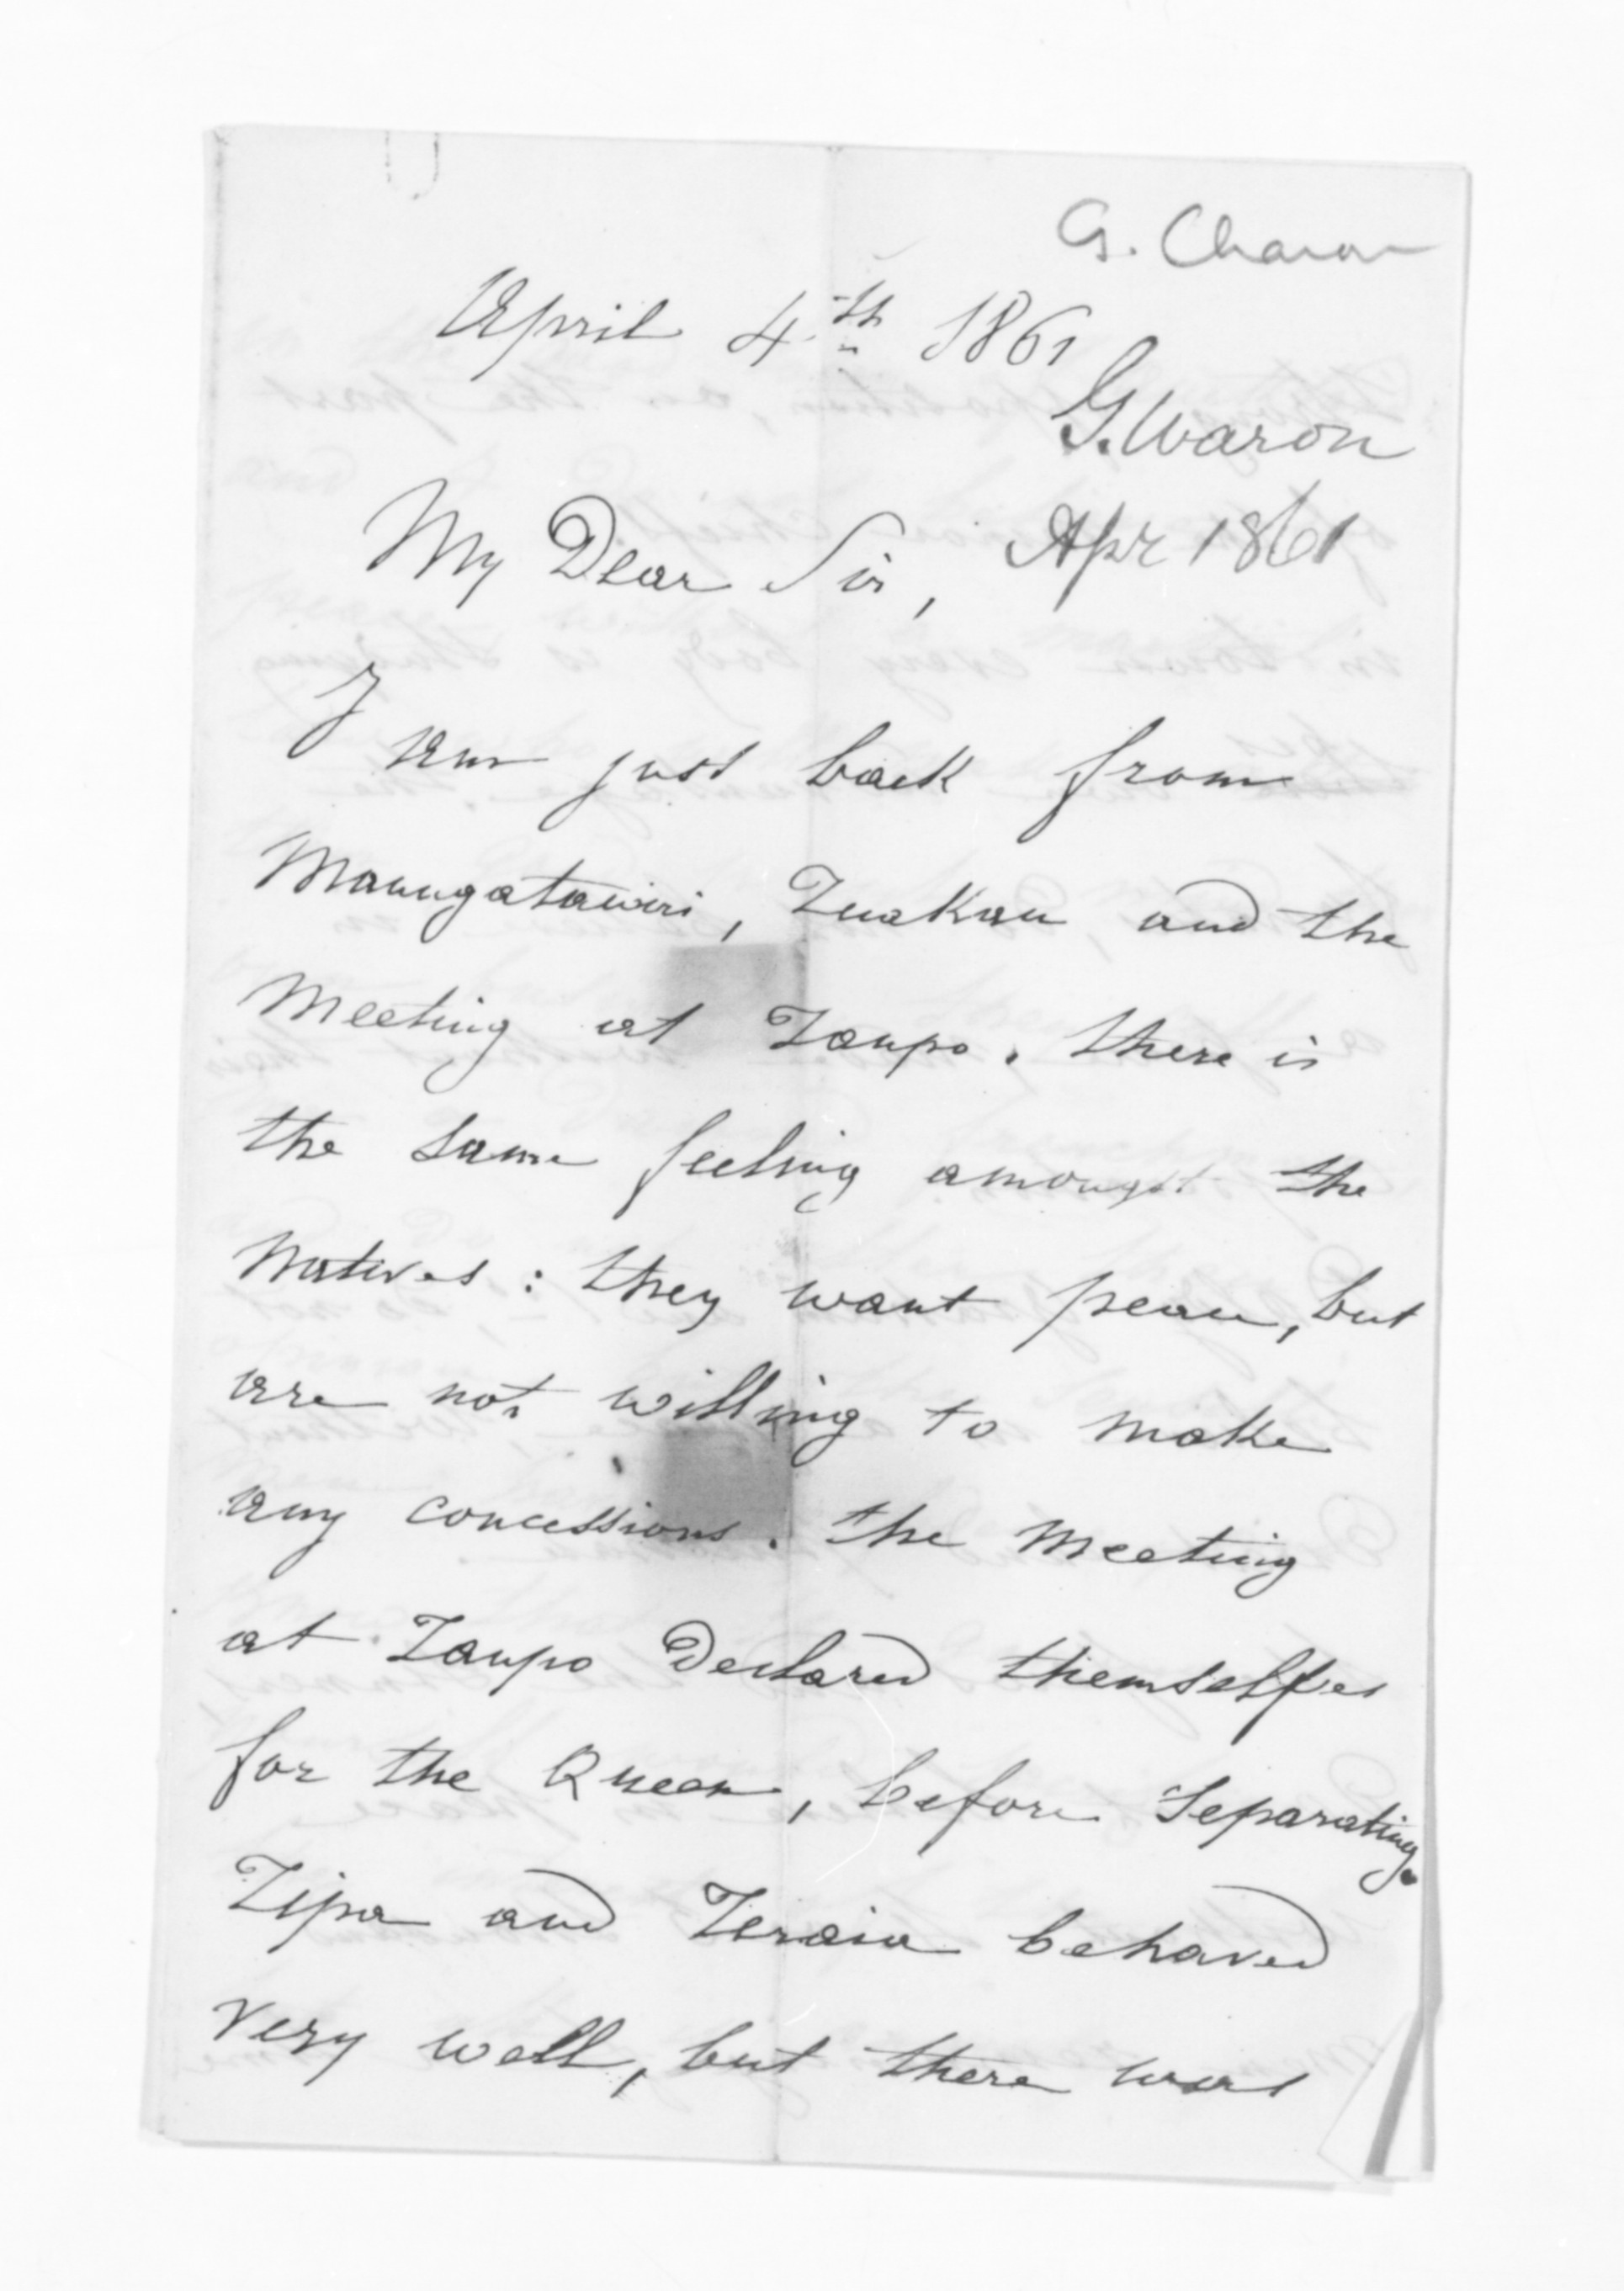 G. Charon
April 4th 1861
G. Waron
Apr 1861
My Dear Sir,
I
am just back from
Maungatawiri, Tuakau and the
Meeting at Taupo. there is
the same feeling amongst the
Natives: they want peace, but
are not willing to make
any concessions. the Meeting
at Taupo Declared themselfes
for the Queen, before Separating.
Tipa and Teraia behaved
very well, but there was